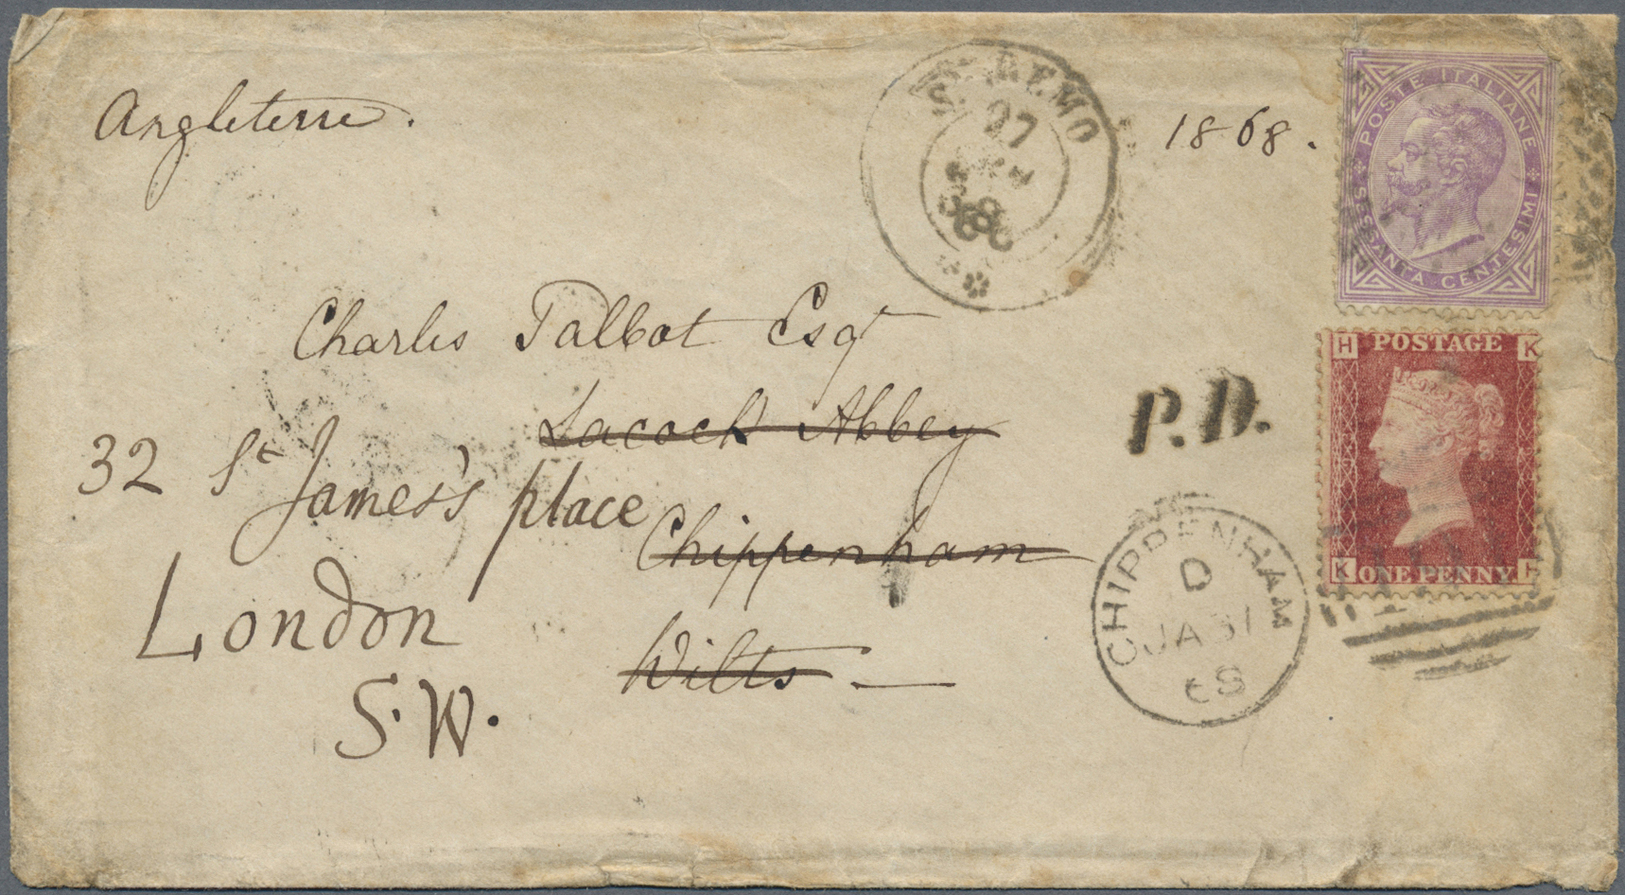 Angleterre.
1868.
S. REMO
27
68
POSTE ITALIANE
SESSANTA CENTESIMI
Charles Talbot Esqr
Lacock Abbey
Chippenham
Wilts —
32 St James's place
London
S.W.
P.D.
H POSTAGE K
K ONE PENNY H
CHIPPENHAM
D
JA 31
68